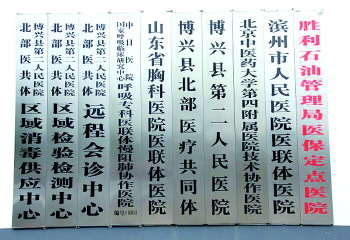 胜利石油管理局医保定点医院
滨州市人民医院医联体医院
北京中医药大学第四附属医院技术协作医院
博兴县第二人民医院
博兴县北部医疗共同体
山东省胸科医院医联体医院
中日医院
国家呼吸临床研究中心
呼吸专科医联体慢阻肺协作医院
编号:
博兴县第二人民医院
北部医共体
远程会诊中心
博兴县第二人民医院
北部医共体
区域检验检测中心
博兴县第二人民医院
北部医共体
区域消毒供应中心